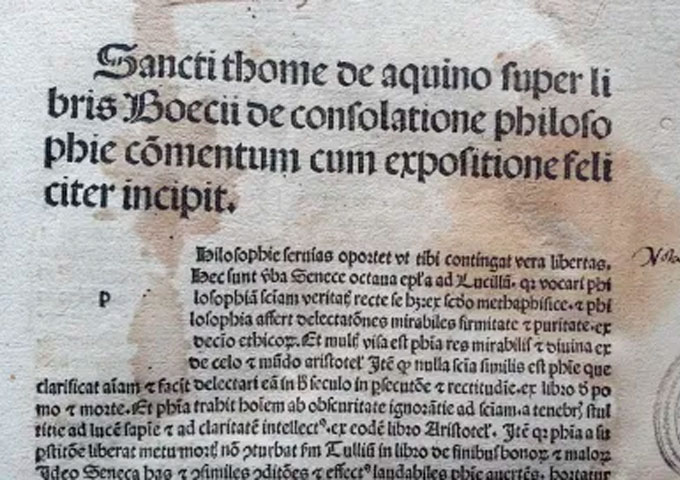 Sancti thome de aquino super li
bris Boecii de consolatione philoso
phie cōmentum cum expositione feli
citer incipit.
Philosophie seruias oportet vt tibi contingat vera libertas.
Hec sunt v̄ba Senece octaua epl'a ad Lucillū. qꝛ vocari phi
P
losophiā sciam veritatꝭ recte se hꝫ: ex scd̄o methaphisice. ⁊ phi
losophia affert delectatōnes mirabiles firmitate ⁊ puritate. ex
decio ethicoꝝ. Et multꝭ visa est phīa res mirabilis ⁊ diuina ex
de celo ⁊ mūdo aristotel' Itē ꝙ nulla scīa similis est phīe que
clarificat aīam ⁊ facit delectari eā in seculo in ꝑfecutōe ⁊ rectitudīe. ex libro po
mo ⁊ morte. Et phīa trahit hoīem ab obscuritate ignorātie ad sciam. a tenebrꝭ stul
titie ad lucē sapīe ⁊ ad claritatē intellectꝰ. ex codē libro Aristotel'. Itē qꝛ phīa a su
ꝑstitōe liberat metu mortꝭ nō ꝯturbat fm Tulliū in libro de finibus bonoꝝ ⁊ maloꝝ
Ideo Seneca has ⁊ ꝯsimiles ꝯditōes ⁊ effectꝰ laudabiles phīe hortatur